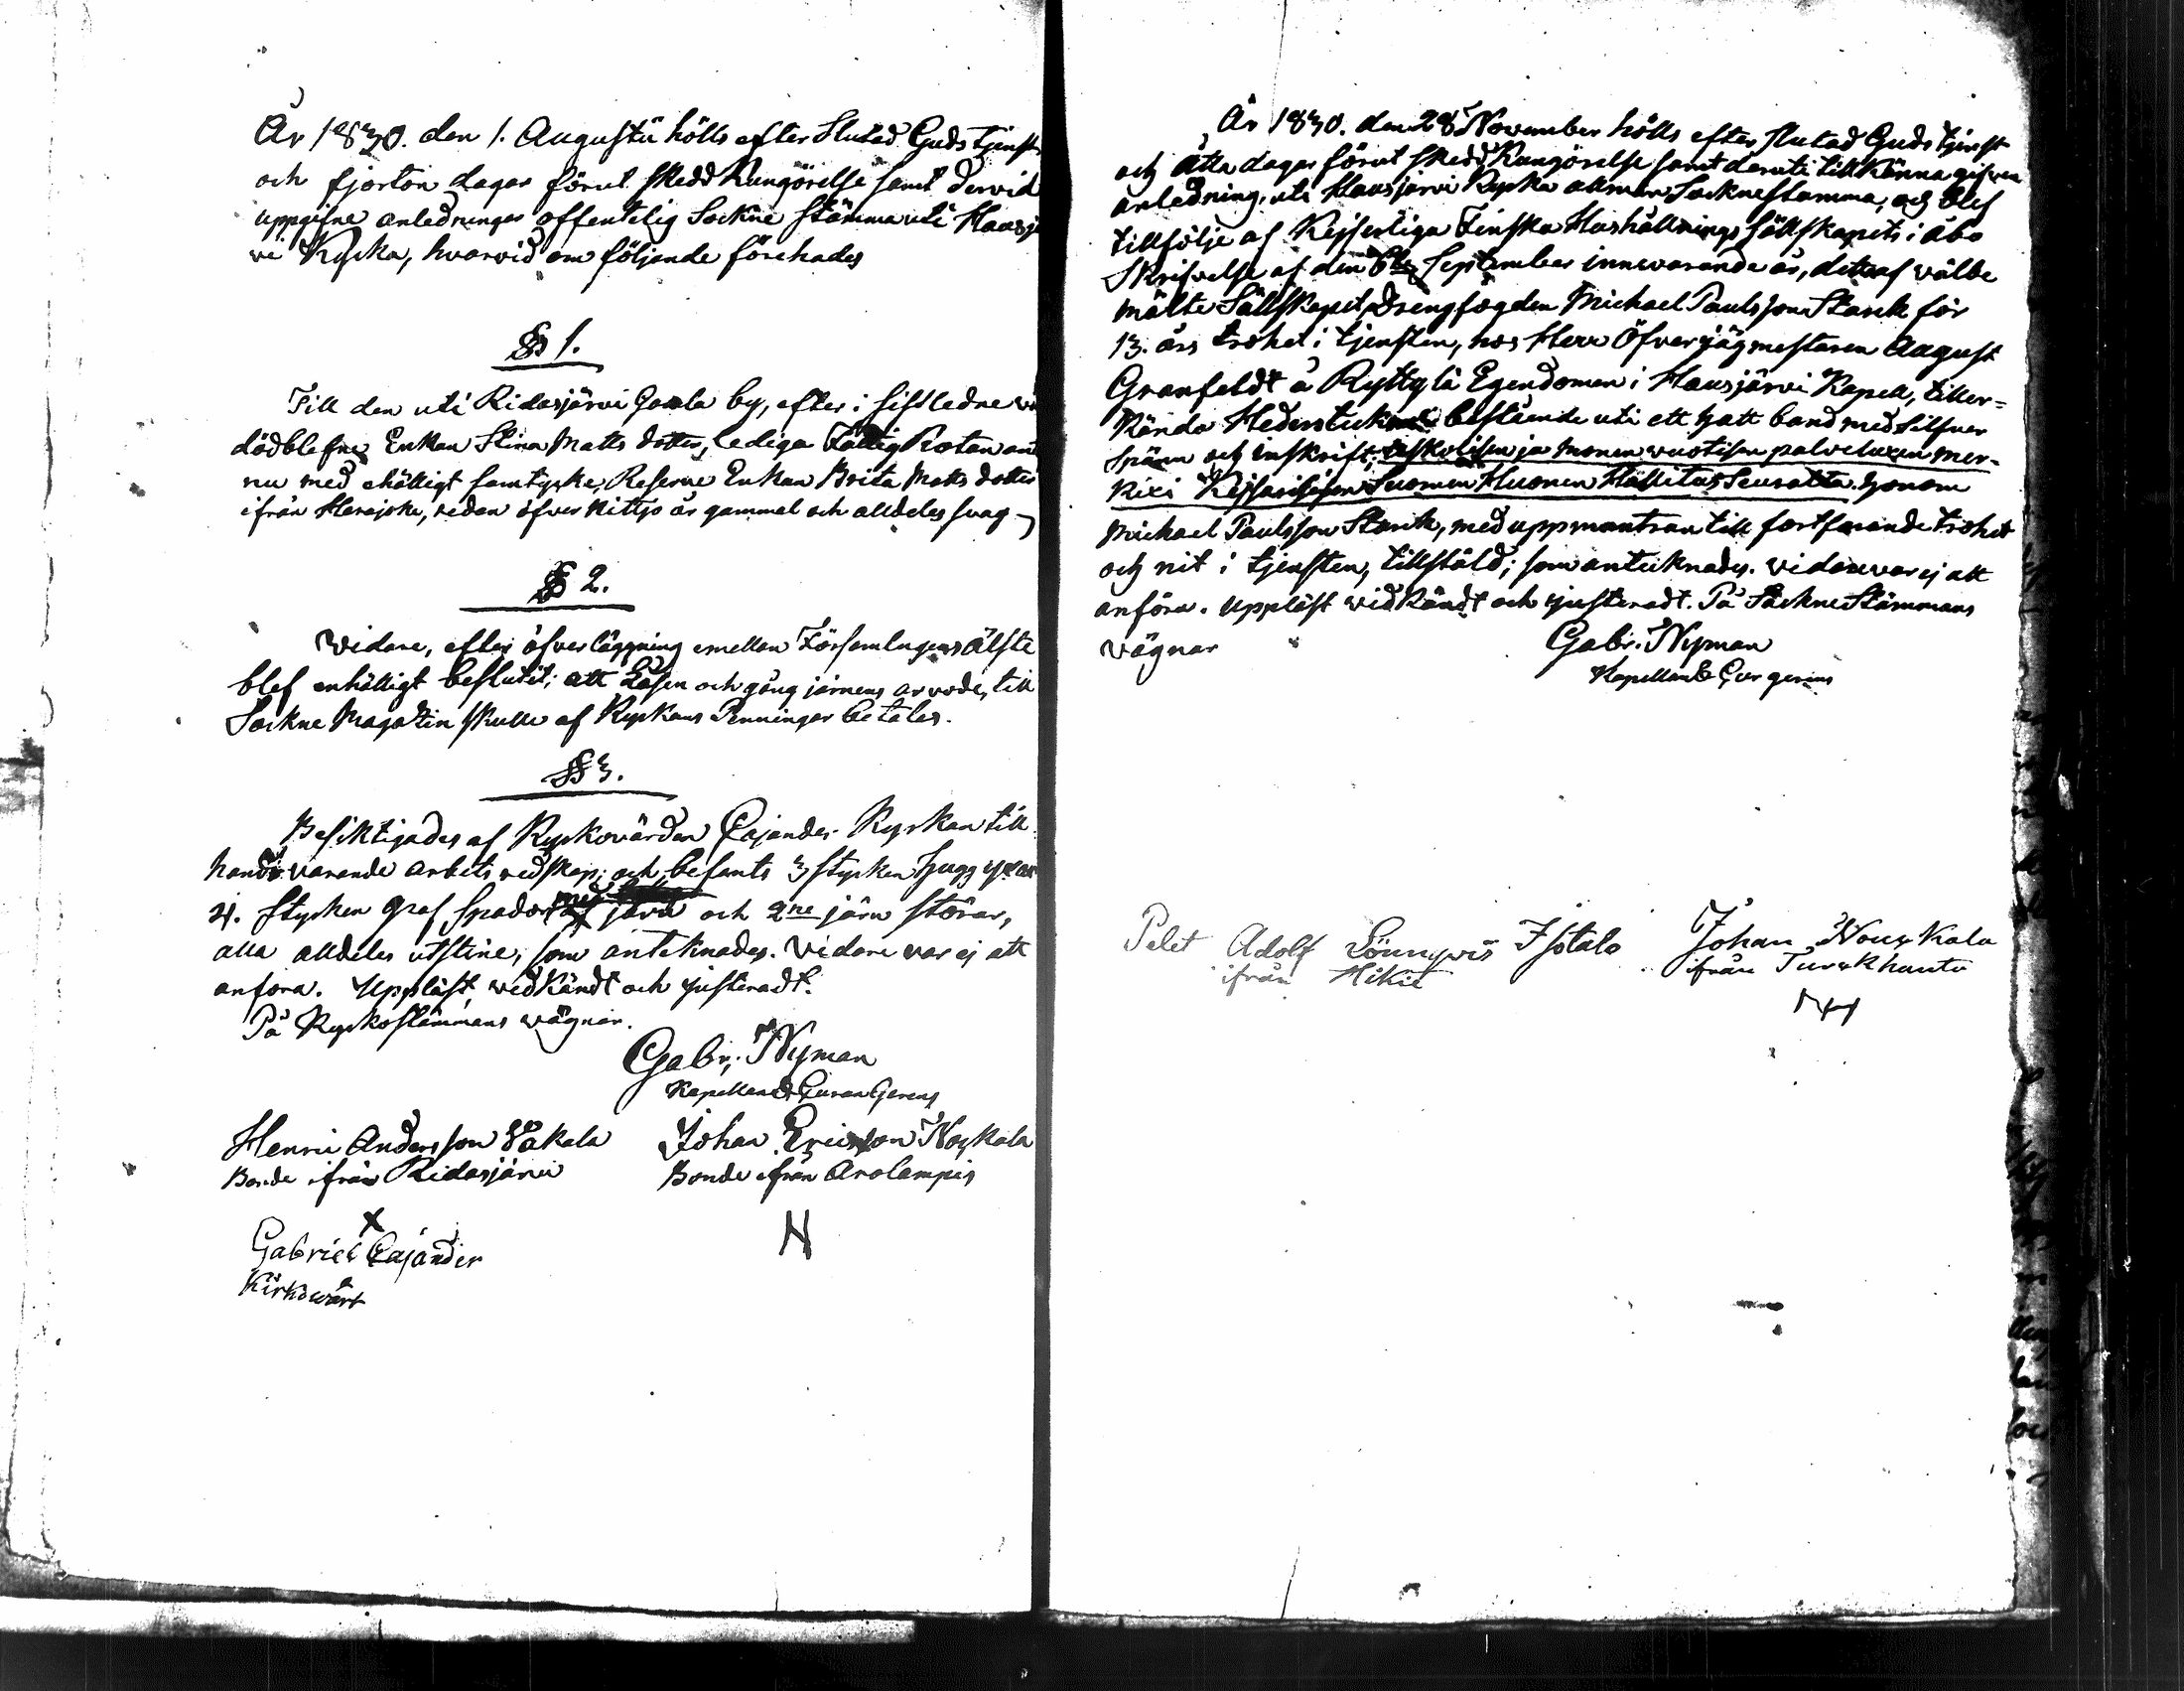 År 1830. den 1. Augusti hölls efter Slutad Gudstjenst
och fjorton dagar förut skedd Kungörelse samt dervid
uppgifne anledningar offentelig Sockne stämma uti Hausjä
vi Kyrka, hvarvid om följande förehades
§ 1.
Till den uti Ridasjärvi by, efter i sistledne
dödblefne Enkan Stina Matts dotter, lediga Fattig Rotan an
nu med ehälligt samtycke, Reserve Enkan Brita Matts dotter
ifrån Herajoke, redan öfver Nittjo år gammal och alldeles svag
§ 2.
Widare, efter öfverläggning emellan Församlingens Älste
blef enhälligt beslutit; att Låsen och gång järnens arvode, till
Sockne Magazin skulle af Kyrkans Penningar betales.
§ 3.
Besiktigades af Kyrkovärden Cajander Kyrkan till
handa varande arbets redskap; och befants 3 stycken hugg yxor
4. stycken Graf Spador med järn och 2ne järn störar,
alla alldeles utslitne, som anteknades. Vidare var ej att
anföra. Uppläst, vedkändt och justeradt.
På Kyrkostämmans vägnar.
Gabr. Nyman
Kapellan & Curam Gerens
Henric Andersson Wäkala Johan Ericsson Noskala
Bonde ifrån Ridasjärvi Bonde ifrån Arolampis
X N
Gabriel Cajander
Kirkowärt
År 1830. den 28 November hölls efter slutad Gudstjenst
och Åtta dagar förut skedd Kungörelse samt deruti tillkänna gifven
anledning, uti Hausjärvi Kyrka allmän Socknestämma, och blef
tillfölje af Kejserliga Finska Hushållnings Sällskapets i Åbo
Skrifvelse af den September innevarande år, det af välbe
mälte Sällskapet, Drengfogden Michael Paulsson Starck för
13. års trohet i tjensten, hos Herr Öfverjägmestaren August
Granfeldt å Ryttylä Egendomen i Hausjärvi Kapell, tiller=
Kända Hederstecknet bestående uti ett hatt band med silfver
spänn och inskrift; uskolisen ja monen vuotisen palveluxen mer-
kixi Kejsarillisen Suomen Huonen Hallitus Seuralta. honom
Michael Paulsson Starck, med uppmuntran till fortfarande trohet
och nit i tjensten, tillstäld; som anteknades. Vidare var ej att
anföra. Uppläst vidkändt och justeradt. På Sockne Stämmans
vägnar Gabr. Nyman
Kapellan & Cur gerens
Pelet Adolf Lönnqvis Isotalo Johan Nouskala
ifrån Hikiä ifrån Turckhauta